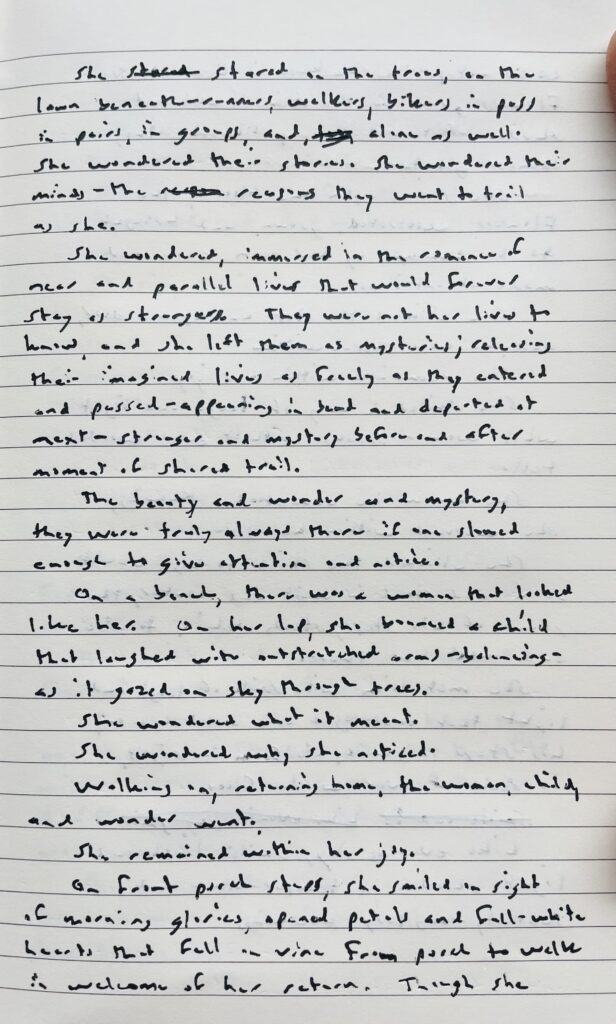 She stared stared on the trees, on the
lawn beneath-runners, walkers, bikers in pass
in pairs, in groups, and, alone as well.
She wondered their stories. She wondered their
minds - the reasons they went to trail
as she.
She wondered, immersed in the romance of
near and parallel lives that would forever
stay as strangers. They were not her lives to
know, and she left them as mysteries; releasing
their imagined lives as freely as they entered
and passed - appearing in bend and departed at
next - stranger and mystery before and after
moment of shared trail.
The beauty and wonder and mystery,
they were truly always there if one slowed
enough to give attention and notice.
On a bench, there was a woman that looked
like her. On her lap, she bounced a child
that laughed with outstretched arms - balancing -
as it gazed on sky through trees.
She wondered what it meant.
She wondered why she noticed.
Walking on, returning home, the woman, child,
and wonder went.
She remained within her joy.
On front porch steps, she smiled on sight
of morning glories, opened petals and full-white
hearts that fell on vine from porch to walk
in welcome of her return. Though she